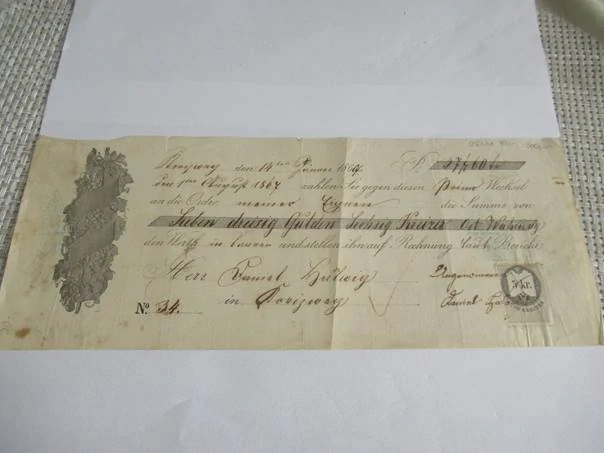 den 14ten Jänner 1867 37,60 kr
den 1ten August 1867 zahlen Sie gegen diesen Prima Wechsel
an die Ordre meiner Eigenen die Summe von
Sieben dreizig Gulden Sechzig Kreuzer Öst. Währung
den Werth in baaren und stellen ihn auf Rechnung laut Bericht
Herr Samuel Ludwig Angenommen
in Samuel
No. 34. 5 kr.